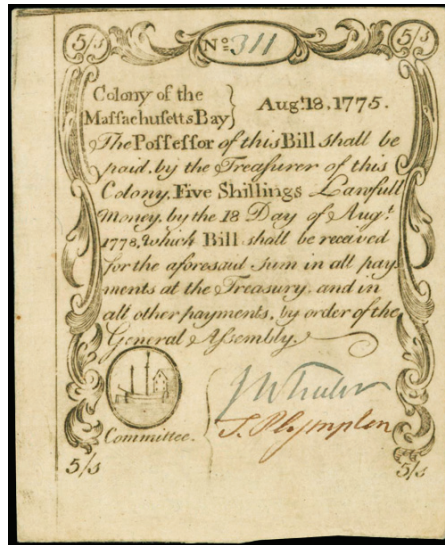 5/s No. 311 5/s
Colony of the
Massachusetts Bay} Augt. 18, 1775.
The Possessor of this Bill shall be
paid, by the Treasurer of this
Colony, Five Shillings Lawfull
Money, by the 18 Day of Augt.
1778, which Bill shall be received
for the aforesaid sum in all pay
ments at the Treasury, and in
all other payments, by order of the
General Assembly.
J Wheeler
Committee. T. Plympton
5/s 5/s